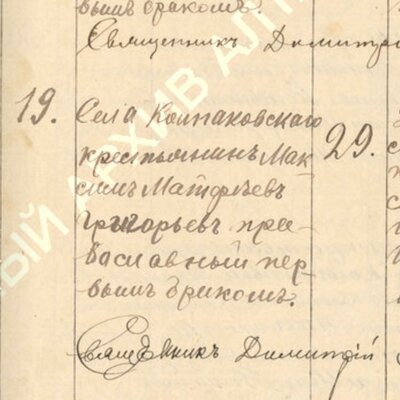 вымъ бракомъ.
Священникъ Димитрі
19. Села Колпаковскаго
крестьянинъ Мак 29.
симъ Матфѣевъ
Григорьевъ пра-
вославный пер
вымъ бракомъ.
Священникъ Димитрій